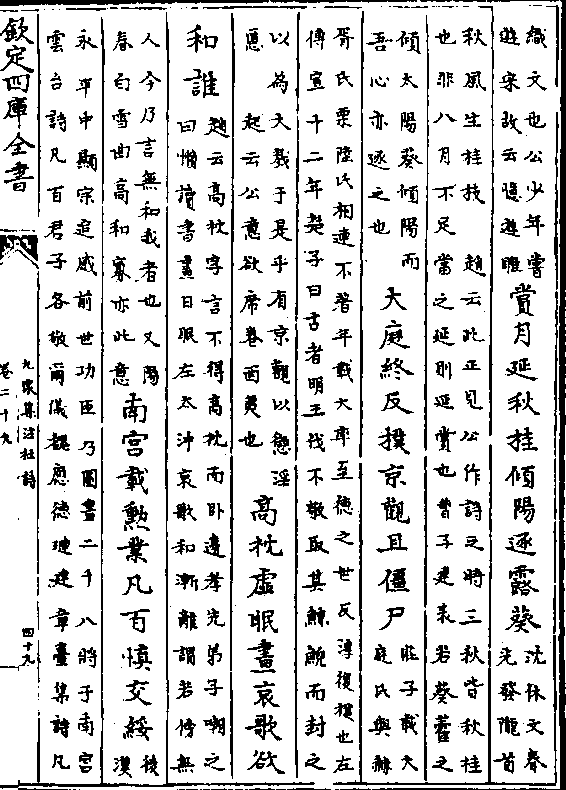 織文也公少年嘗
遊宋故云憶遊睢
賞月延秋桂傾陽逐露葵
沈休文春
光發隴首
秋風生桂枝 趙云此正見公作詩之時三秋皆秋桂
也非八月不足當之延則延賞也曹子建表若葵藿之
傾太陽葵傾陽而
吾心亦逐之也
大庭終反撲京觀且僵尸
莊子載大
庭氏與赫
胥氏栗陸氏相連不著年載大率至德之世反淳復樸也左
傳宣十二年楚子曰古者明王伐不敬取其鯨鯢而封之
以為大戮于是乎有京觀以懲淫
慝 趙云公意欲席卷西夷也
高枕虛眠晝哀歌欲
和誰
趙云高枕字言不得高枕而卧邊孝先弟子嘲之
曰懶讀書晝日眠左太沖哀歌和漸離謂若傍無
人今乃言無和我者也又陽
春白雪曲高和寡亦此意
南宮載勲業凡百慎交綏
後
漢
永平中顯宗追感前世功臣乃圖畫二十八將于南宮
雲台詩凡百君子各敬爾儀魏應德璉建章臺集詩凡
欽定四庫全書
九家集注杜詩
卷二十九
四十九